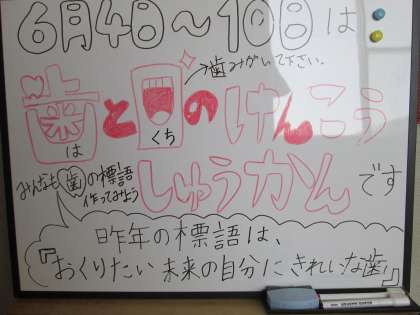 6月4日～10日は
歯みがいて下さい。
歯と口のけんこう
は
くち
しゅうかんです
みんなも歯の標語
作ってみよう
昨年の標語は、
『おくりたい 未来の自分に きれいな歯』